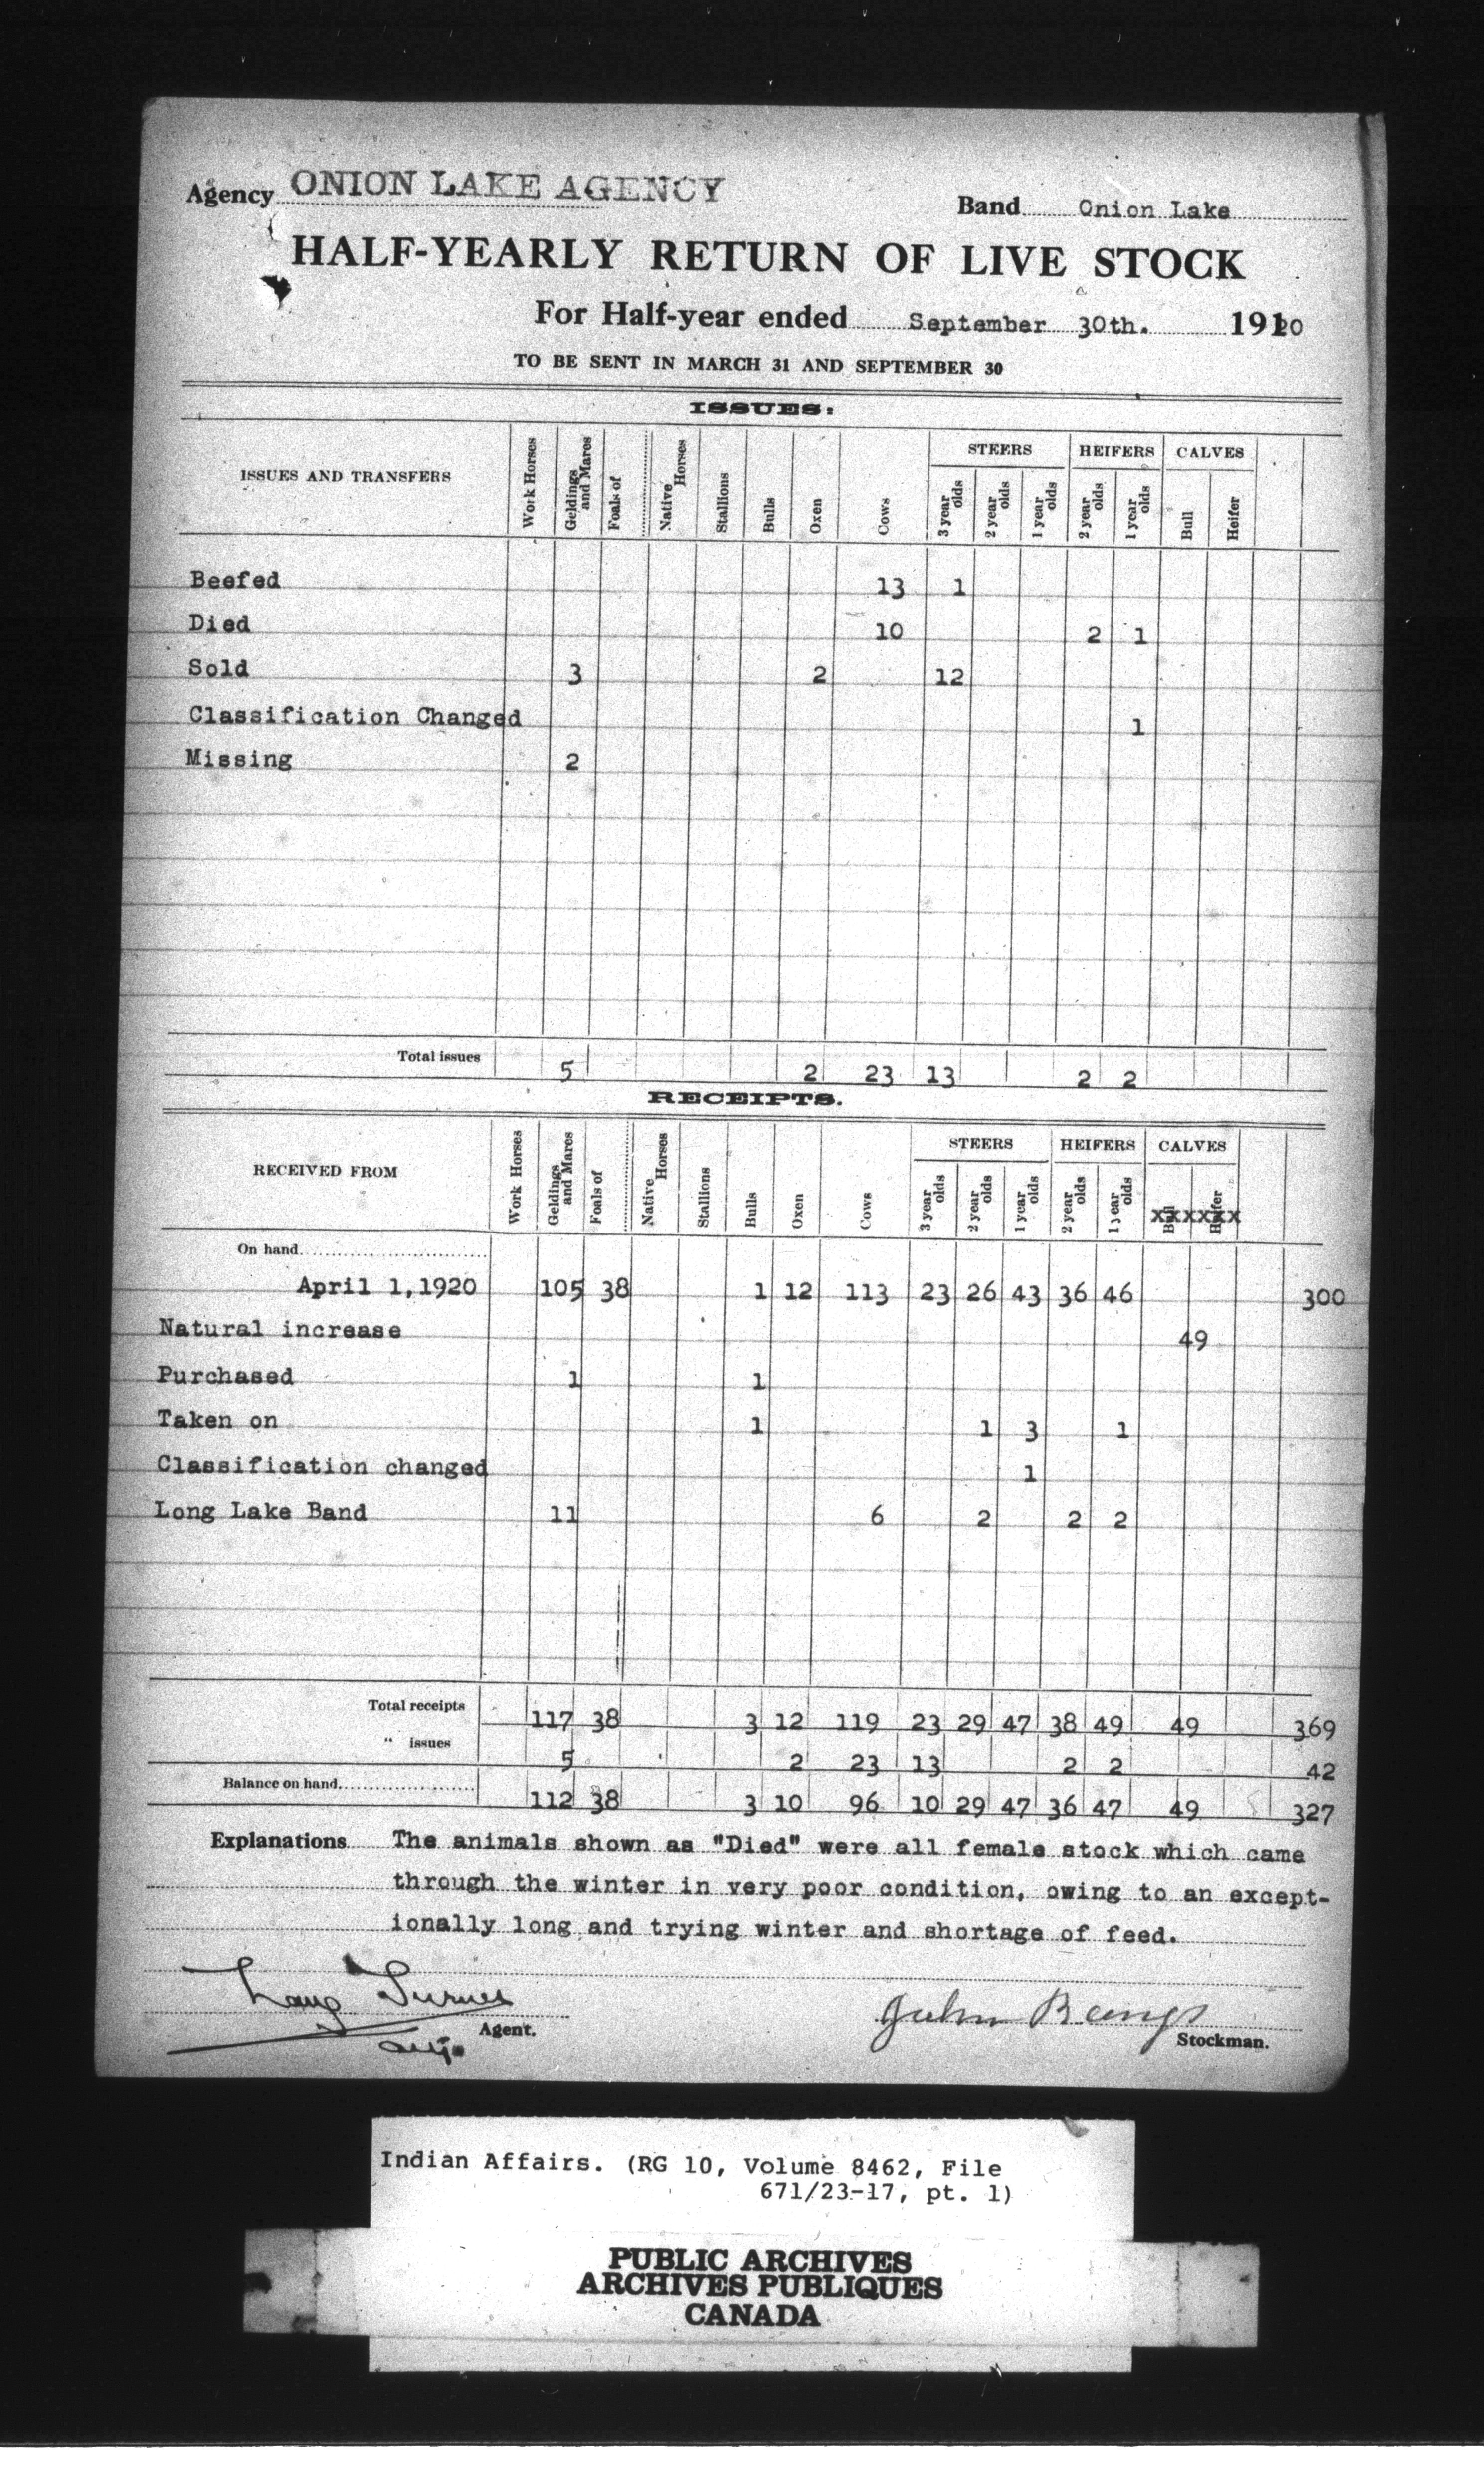 Agency ONION LAKE AGENCY Band Onion Lake
HALF-YEARLY RETURN OF LIVE STOCK
For Half-year ended September 30th. 1920
TO BE SENT IN MARCH 31 AND SEPTEMBER 30
ISSUES:
ISSUES AND TRANSFERS Work Horses Geldings and Mares Foals of Native Horses Stallions Bulls Oxen Cows STEERS 3 year olds 2 year olds 1 year olds HEIFERS 2 year olds 1 year olds CALVES Bull Heifer
Beefed 13 1
Died 10 2 1
Sold 3 2 12
Classification Changed 1
Missing 2
Total issues 5 2 23 13 2 2
RECEIPTS.
RECEIVED FROM Work Horses Geldings and Mares Foals of Native Horses Stallions Bulls Oxen Cows STEERS 3 year olds 2 year olds 1 year olds HEIFERS 2 year olds 1 year olds CALVES Bull Heifer xxxxxx
On hand
April 1,1920 105 38 1 12 113 23 26 43 36 46 300
Natural increase 49
Purchased 1 1
Taken on 1 1 3 1
Classification changed 1
Long Lake Band 11 6 2 2 2
Total receipts 117 38 3 12 119 23 29 47 38 49 49 369
" issues 5 2 23 13 2 2 42
Balance on hand 112 38 3 10 96 10 29 47 36 47 49 327
Explanations The animals shown as "Died" were all female stock which came
through the winter in very poor condition, owing to an except-
ionally long and trying winter and shortage of feed.
Turner
Agent.
John Bangs
Stockman.
Indian Affairs. (RG 10, Volume 8462, File
671/23-17, pt. 1)
PUBLIC ARCHIVES
ARCHIVES PUBLIQUES
CANADA